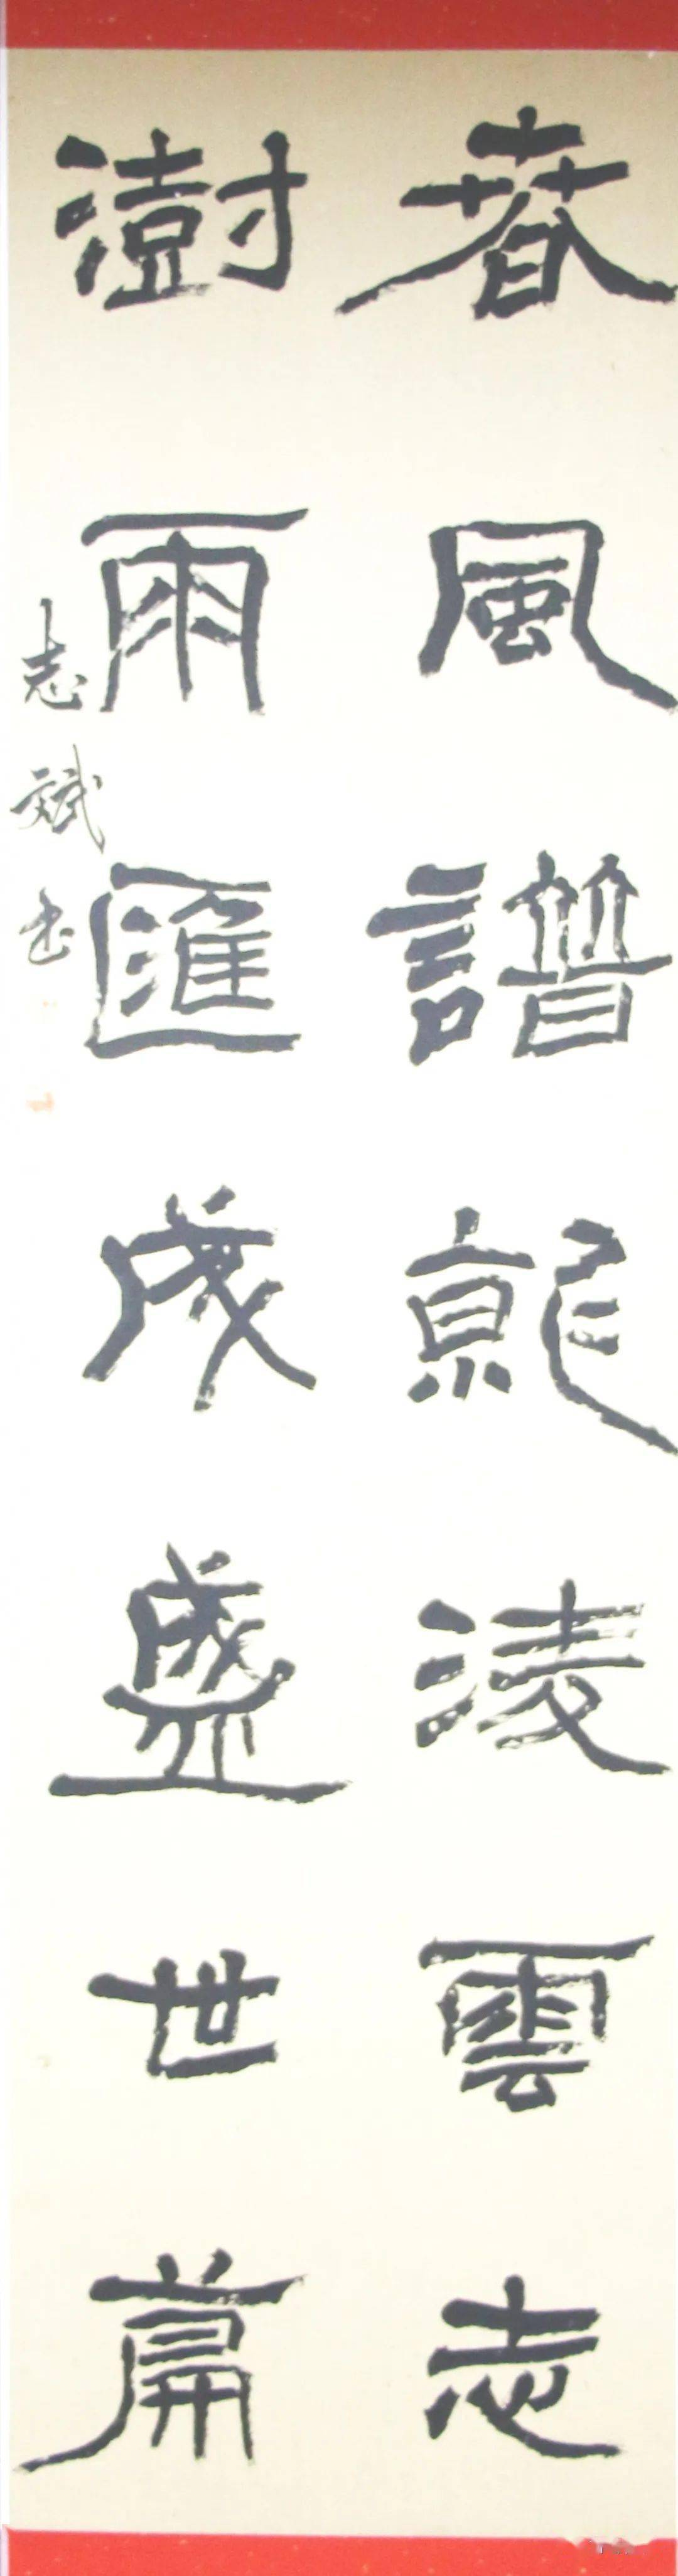 春風譜就淩雲志
澍雨匯成盛世篇
志斌書